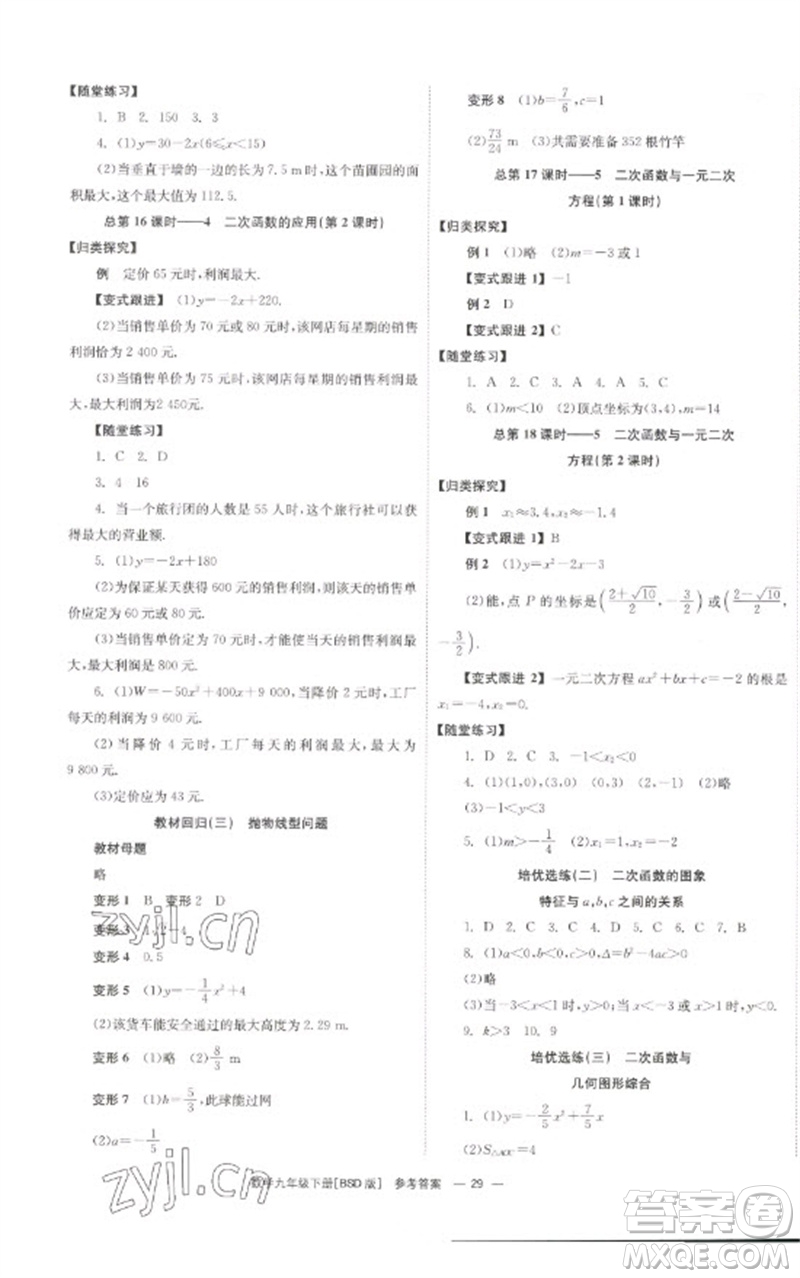 【随堂练习】
1. B 2. 150 3. 3
4. (1)y=30-2x(6≤x<15)
(2)当垂直于墙的一边的长为 7.5 m 时,这个苗圃园的面
积最大,这个最大值为 112.5.
总第 16 课时——4 二次函数的应用(第 2 课时)
【归类探究】
例 定价 65 元时,利润最大.
【变式跟进】 (1)y=-2x+220.
(2)当销售单价为 70 元或 80 元时,该网店每星期的销售
利润恰为 2 400 元.
(3)当销售单价为 75 元时,该网店每星期的销售利润最
大,最大利润为2 450元.
【随堂练习】
1. C 2. D
3. 4 16
4. 当一个旅行团的人数是 55 人时,这个旅行社可以获
得最大的营业额.
5. (1)y=-2x+180
(2)为保证某天获得 600 元的销售利润,则该天的销售单
价应定为 60 元或 80 元.
(3)当销售单价定为 70 元时,才能使当天的销售利润最
大,最大利润是 800 元.
6. (1)W=-50x²+400x+9 000,当降价 2 元时,工厂
每天的利润为 9 600 元.
(2)当降价 4 元时,工厂每天的利润最大,最大为
9 800 元.
(3)定价应为 43 元.
教材回归(三) 抛物线型问题
教材母题
略
变形 1 B 变形 2 D
变形 3
变形 4 0.5
变形 5 (1)y=-1/4x²+4
(2)该货车能安全通过的最大高度为 2.29 m.
变形 6 (1)略 (2)8/3 m
变形 7 (1)h=5/3,此球能过网
(2)a=-1/5
变形 8 (1)b=7/6,c=1
(2)73/24 m (3)共需要准备 352 根竹竿
总第 17 课时——5 二次函数与一元二次
方程(第 1 课时)
【归类探究】
例 1 (1)略 (2)m=-3 或 1
【变式跟进 1】 -1
例 2 D
【变式跟进 2】C
【随堂练习】
1. A 2. C 3. A 4. A 5. C
6. (1)m<10 (2)顶点坐标为(3,4),m=14
总第 18 课时——5 二次函数与一元二次
方程(第 2 课时)
【归类探究】
例 1 x₁≈3.4,x₂≈-1.4
【变式跟进 1】B
例 2 (1)y=x²-2x-3
(2)能,点 P 的坐标是((2+√10)/2,-3/2)或((2-√10)/2,
-3/2).
【变式跟进 2】 一元二次方程 ax²+bx+c=-2 的根是
x₁=-4,x₂=0.
【随堂练习】
1. D 2. C 3. -1<x₂<0
4. (1)(1,0),(3,0) (0,3) (2,-1) (2)略
(3)-1<y<3
5. (1)m>-1/4 (2)x₁=1,x₂=-2
培优选练(二) 二次函数的图象
特征与a,b,c之间的关系
1. D 2. C 3. D 4. D 5. B 6. B 7. C
8. (1)a<0,b<0,c>0,Δ=b²-4ac>0
(2)略
(3)当-3<x<1 时,y>0;当 x<-3 或 x>1 时,y<0.
9. k>3 10. 9
培优选练(三) 二次函数与
几何图形综合
1. (1)y=-2/5x²+7/5x
(2)S△AOC=4
数学九年级下册[BSD版] 参考答案 — 29 —
zyjl.cn
zyjl.cn
答案圈
MXQE.COM